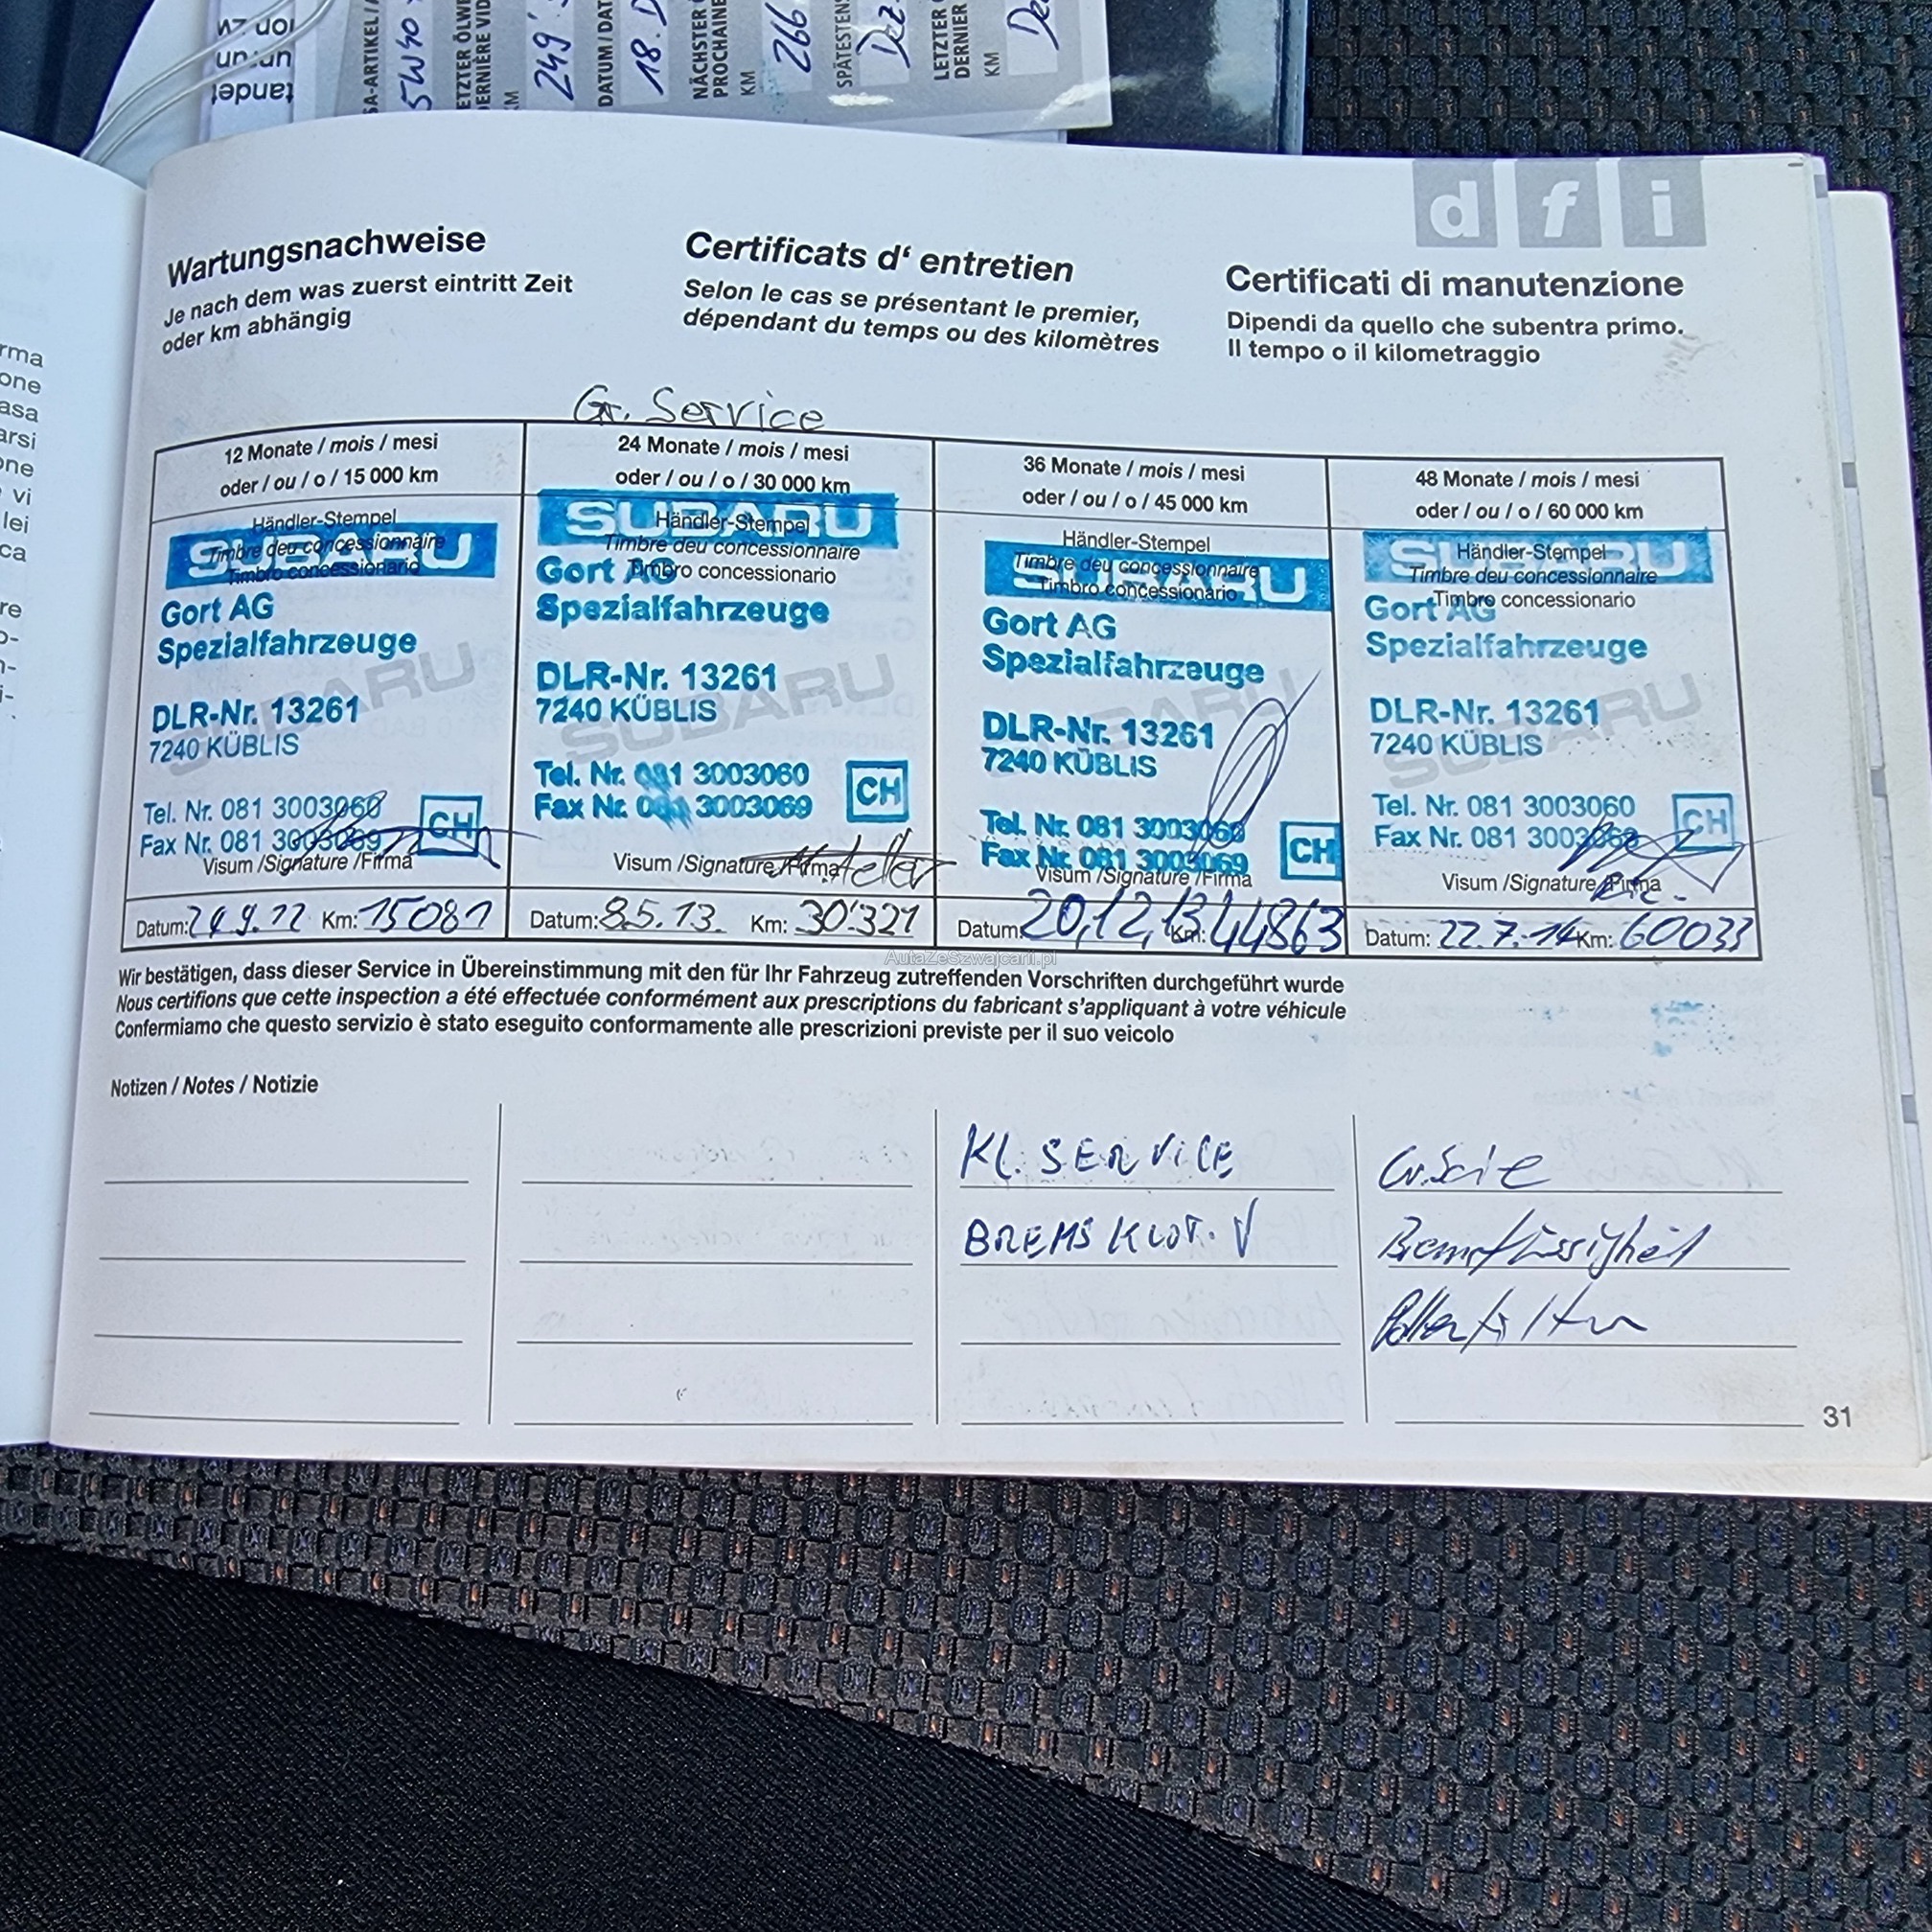 SA-ARTIKEL
5W40
ETZTER ÖLWE
ERNIÈRE VID
KM
249'
DATUM / DAT
18. D
NÄCHSTER
PROCHAINE
KM
266
SPÄTESTENS
Dez
LETZTER
DERNIER
KM
De
d f i
Wartungsnachweise
Je nach dem was zuerst eintritt Zeit
oder km abhängig
Certificats d‘ entretien
Selon le cas se présentant le premier,
dépendant du temps ou des kilomètres
Certificati di manutenzione
Dipendi da quello che subentra primo.
Il tempo o il kilometraggio
rma
one
asa
arsi
one
vi
lei
ca
re
Gr. Service
12 Monate / mois / mesi
oder / ou / o / 15 000 km
Händler-Stempel
Timbre deu concessionnaire
Timbro concessionario
SUBARU
Gort AG
Spezialfahrzeuge
SUBARU
DLR-Nr. 13261
7240 KÜBLIS
Tel. Nr. 081 3003060
Fax Nr. 081 3003069
CH
Visum /Signature /Firma
Datum: 24.9.12 Km: 15081
24 Monate / mois / mesi
oder / ou / o / 30 000 km
SUBARU
Händler-Stempel
Timbre deu concessionnaire
Timbro concessionario
Gort AG
Spezialfahrzeuge
SUBARU
DLR-Nr. 13261
7240 KÜBLIS
Tel. Nr. 081 3003060
Fax Nr. 081 3003069
CH
Visum /Signature /Firma
Datum: 8.5.13. Km: 30'321
36 Monate / mois / mesi
oder / ou / o / 45 000 km
Händler-Stempel
Timbre deu concessionnaire
Timbro concessionario
SUBARU
Gort AG
Spezialfahrzeuge
SUBARU
DLR-Nr. 13261
7240 KÜBLIS
Tel. Nr. 081 3003060
Fax Nr. 081 3003069
CH
Visum /Signature /Firma
Datum: 20,12,13 Km: 44863
48 Monate / mois / mesi
oder / ou / o / 60 000 km
SUBARU
Händler-Stempel
Timbre deu concessionnaire
Timbro concessionario
Gort AG
Spezialfahrzeuge
SUBARU
DLR-Nr. 13261
7240 KÜBLIS
Tel. Nr. 081 3003060
Fax Nr. 081 3003069
CH
Visum /Signature /Firma
Datum: 22.7.14 Km: 60033
AutaZeSzwajcarii.pl
Wir bestätigen, dass dieser Service in Übereinstimmung mit den für Ihr Fahrzeug zutreffenden Vorschriften durchgeführt wurde
Nous certifions que cette inspection a été effectuée conformément aux prescriptions du fabricant s'appliquant à votre véhicule
Confermiamo che questo servizio è stato eseguito conformamente alle prescrizioni previste per il suo veicolo
Notizen / Notes / Notizie
KL. SERVICE
BREMSKLOT. V
Gr. Service
Bremsflüssigkeit
Pollenfilter
31